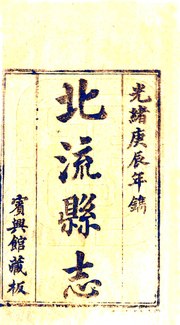 光緒庚辰年鐫
北流縣志
賓興館藏板